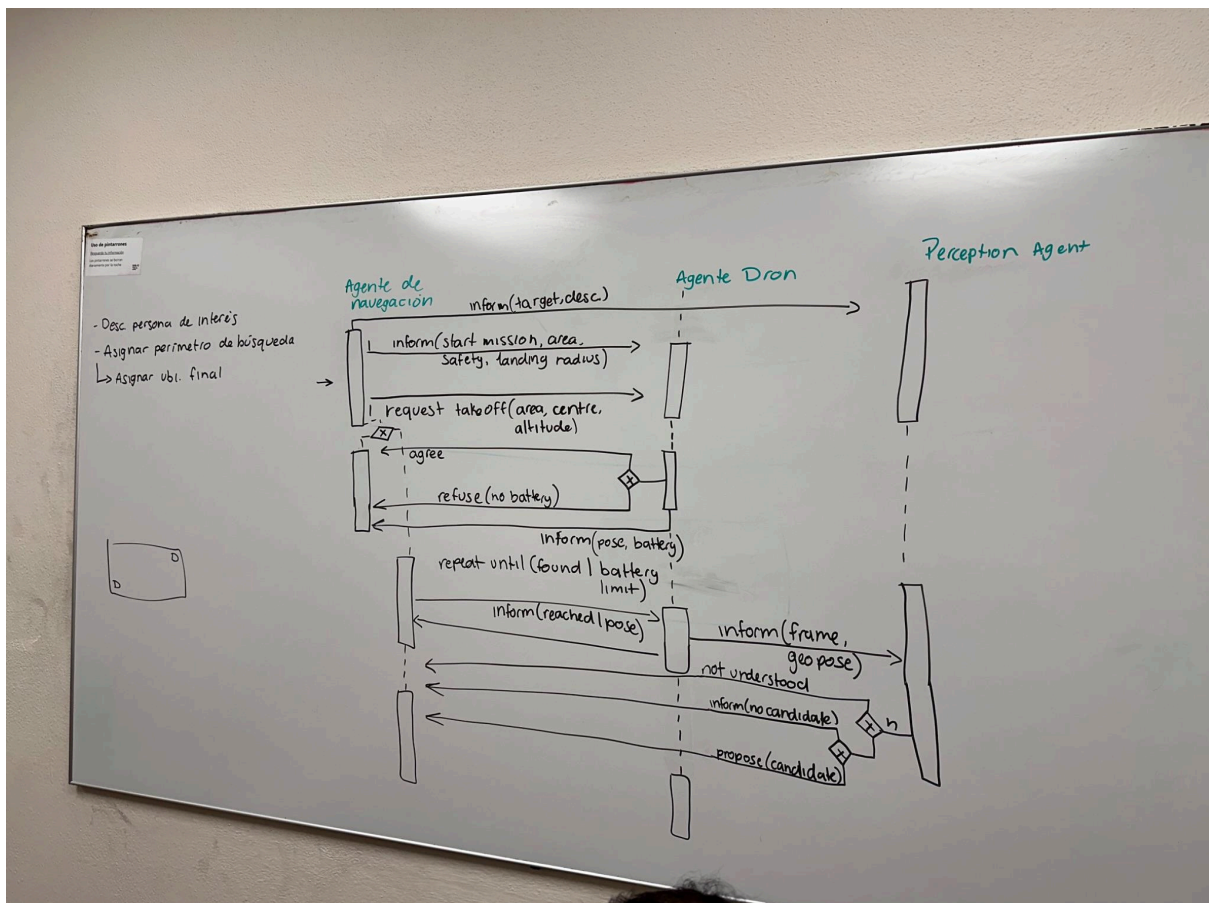 Uso de pintarrones
- Desc. persona de interés
- Asignar perímetro de búsqueda
↳ Asignar ubi. final
D
D
Agente de
navegación
Agente Dron
Perception Agent
inform(target,desc.)
inform(start mission, area,
safety, landing radius)
request takeoff(area, centre,
altitude)
x
agree
x
refuse(no battery)
inform(pose, battery)
repeat until(found | battery
limit)
inform(reached | pose)
inform(frame,
geopose)
not understood
inform(no candidate)
x
n
x
propose(candidate)